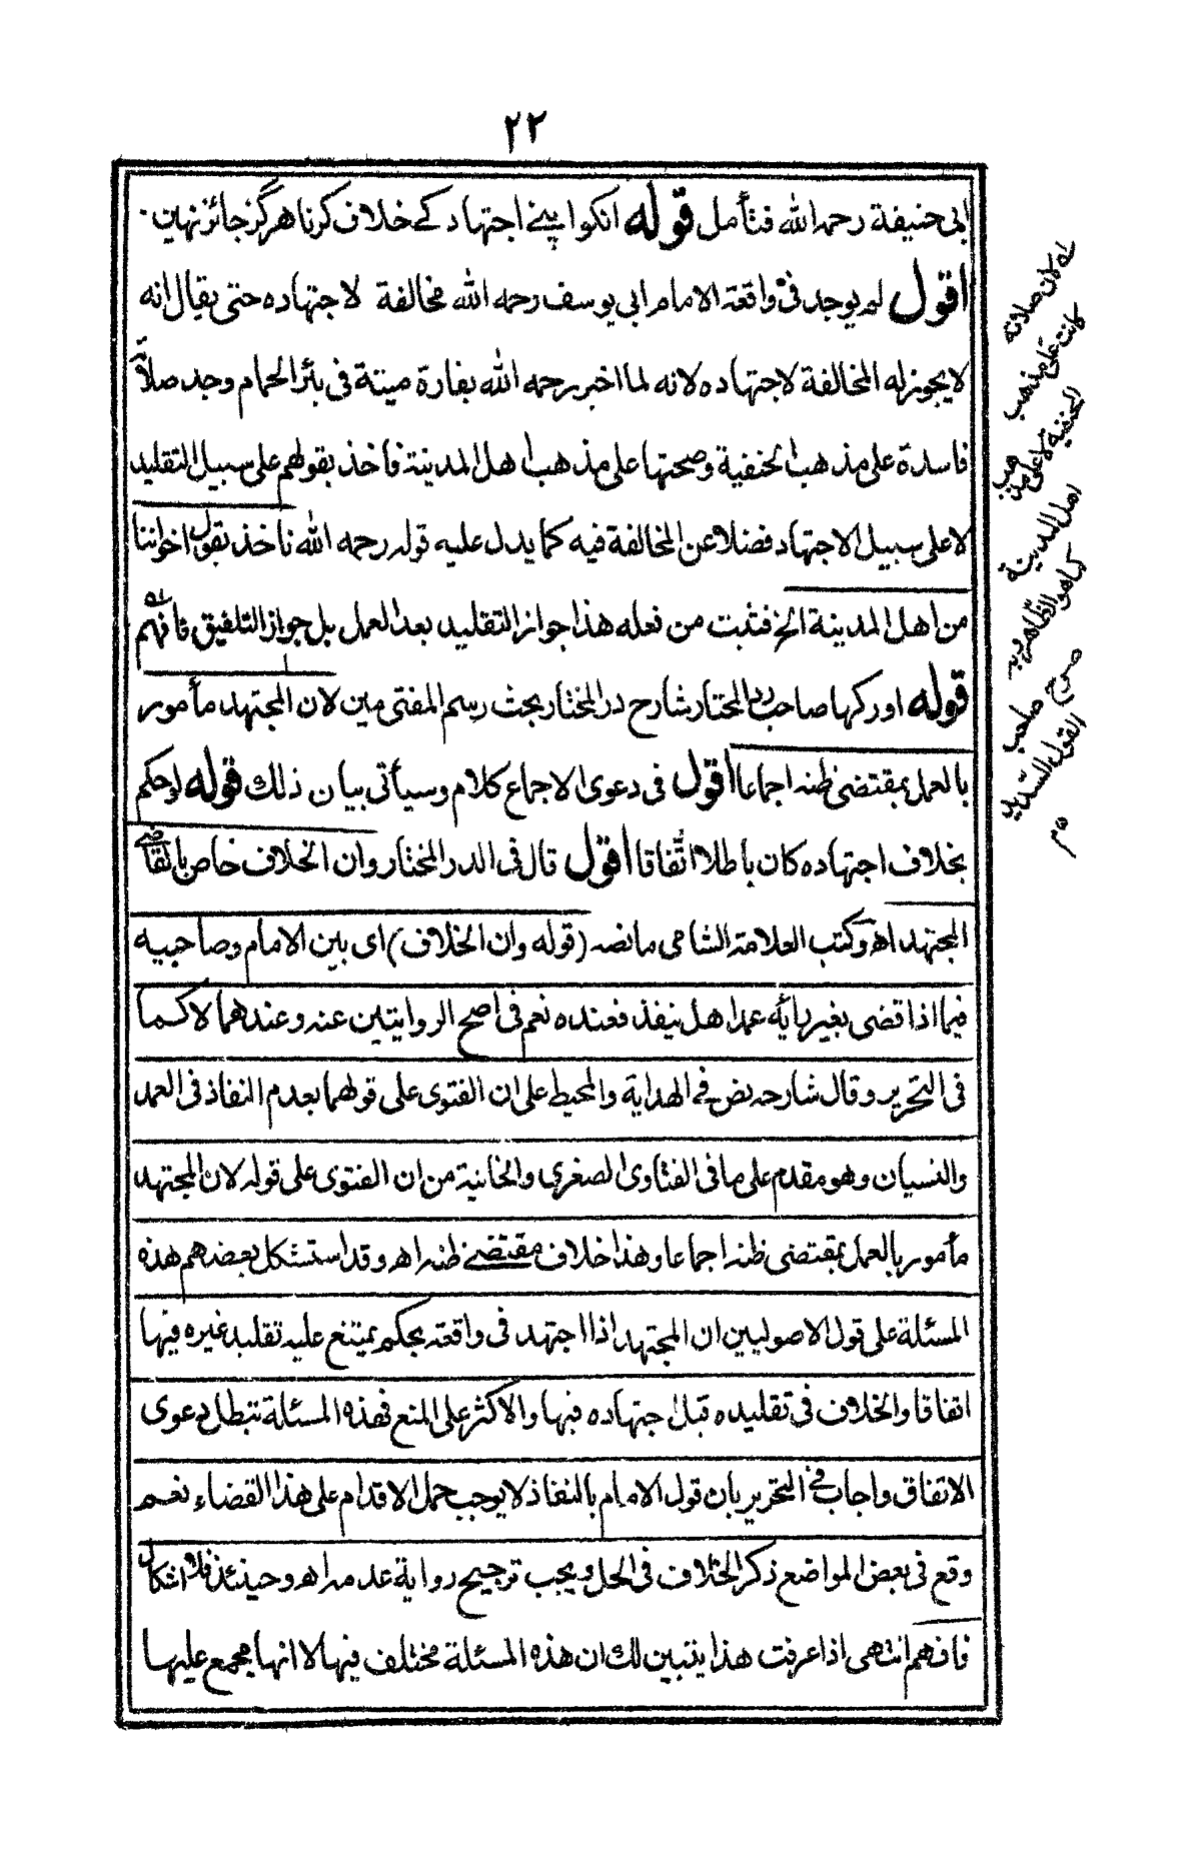 ٢٢
ابى حنيفة رحمه الله فتأمل قوله انكو اپنے اجتهاد كے خلاف كرنا هرگز جائز نهين
اقول لم يوجد فى واقعة الامام ابى يوسف رحمه الله مخالفة لاجتهاده حتى يقال انه
لا يجوز له المخالفة لاجتهاده لانه لما اخبر رحمه الله بفارة ميتة فى بئر الحمام وجد صلاته
فاسدة على مذهب الحنفية وصحتها على مذهب اهل المدينة فاخذ بقولهم على سبيل التقليد
لا على سبيل الاجتهاد فضلا عن المخالفة فيه كما يدل عليه قوله رحمه الله ناخذ بقول اخواننا
من اهل المدينة الخ فثبت من فعله هذا جواز التقليد بعد العمل بل جواز التلفيق فافهم
قوله اور كها صاحب رد المحتار شارح در المختار بحث رسم المفتى مين لان المجتهد مأمور
بالعمل بمقتضى ظنه اجماعا اقول فى دعوى الاجماع كلام وسيأتى بيان ذلك قوله لوحكم
بخلاف اجتهاده كان باطلا اتفاقا اقول قال فى الدر المختار وان الخلاف خاص بالقاضى
المجتهد اه وكتب العلامة الشامى ما نصه (قوله وان الخلاف) اى بين الامام وصاحبيه
فيما اذا قضى بغير رأيه عمدا هل ينفذ فعنده نعم فى اصح الروايتين عنه وعندهما لا كما
فى التحرير وقال شارحه نص فى الهداية والمحيط على ان الفتوى على قولهما بعدم النفاذ فى العمد
والنسيان وهو مقدم على ما فى الفتاوى الصغرى والخانية من ان الفتوى على قوله لان المجتهد
مأمور بالعمل بمقتضى ظنه اجماعا وهذا خلاف مقتضى ظنه اه وقد استشكل بعضهم هذه
المسئلة على قول الاصوليين ان المجتهد اذا اجتهد فى واقعة بحكم يمتنع عليه تقليد غيره فيها
اتفاقا والخلاف فى تقليده قبل اجتهاده فيها والاكثر على المنع فهذه المسئلة تبطل دعوى
الاتفاق واجاب فى التحرير بان قول الامام بالنفاذ لا يوجب حمل الاقدام على هذا القضاء نعم
وقع فى بعض المواضع ذكر الخلاف فى الحل ويجب ترجيح رواية عدمه اه وحينئذ فلا اشكال
فافهم انتهى اذا عرفت هذا يتبين لك ان هذه المسئلة مختلف فيها لا انها مجمع عليها
لان صلاته
كانت على مذهب
الحنفية لا على مذهب
اهل المدينة
كما هو الظاهر وبه
صرح صاحب
القول السديد